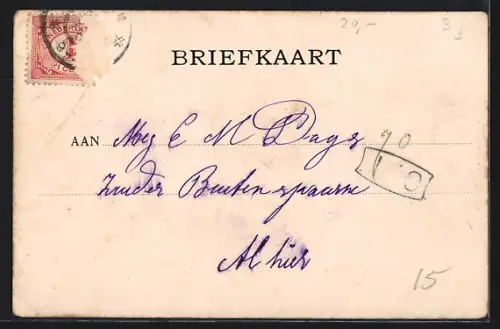 20,-
BRIEFKAART
AAN Mej E M Dager
70
Zuider Buitenspaarne
Alhier
15